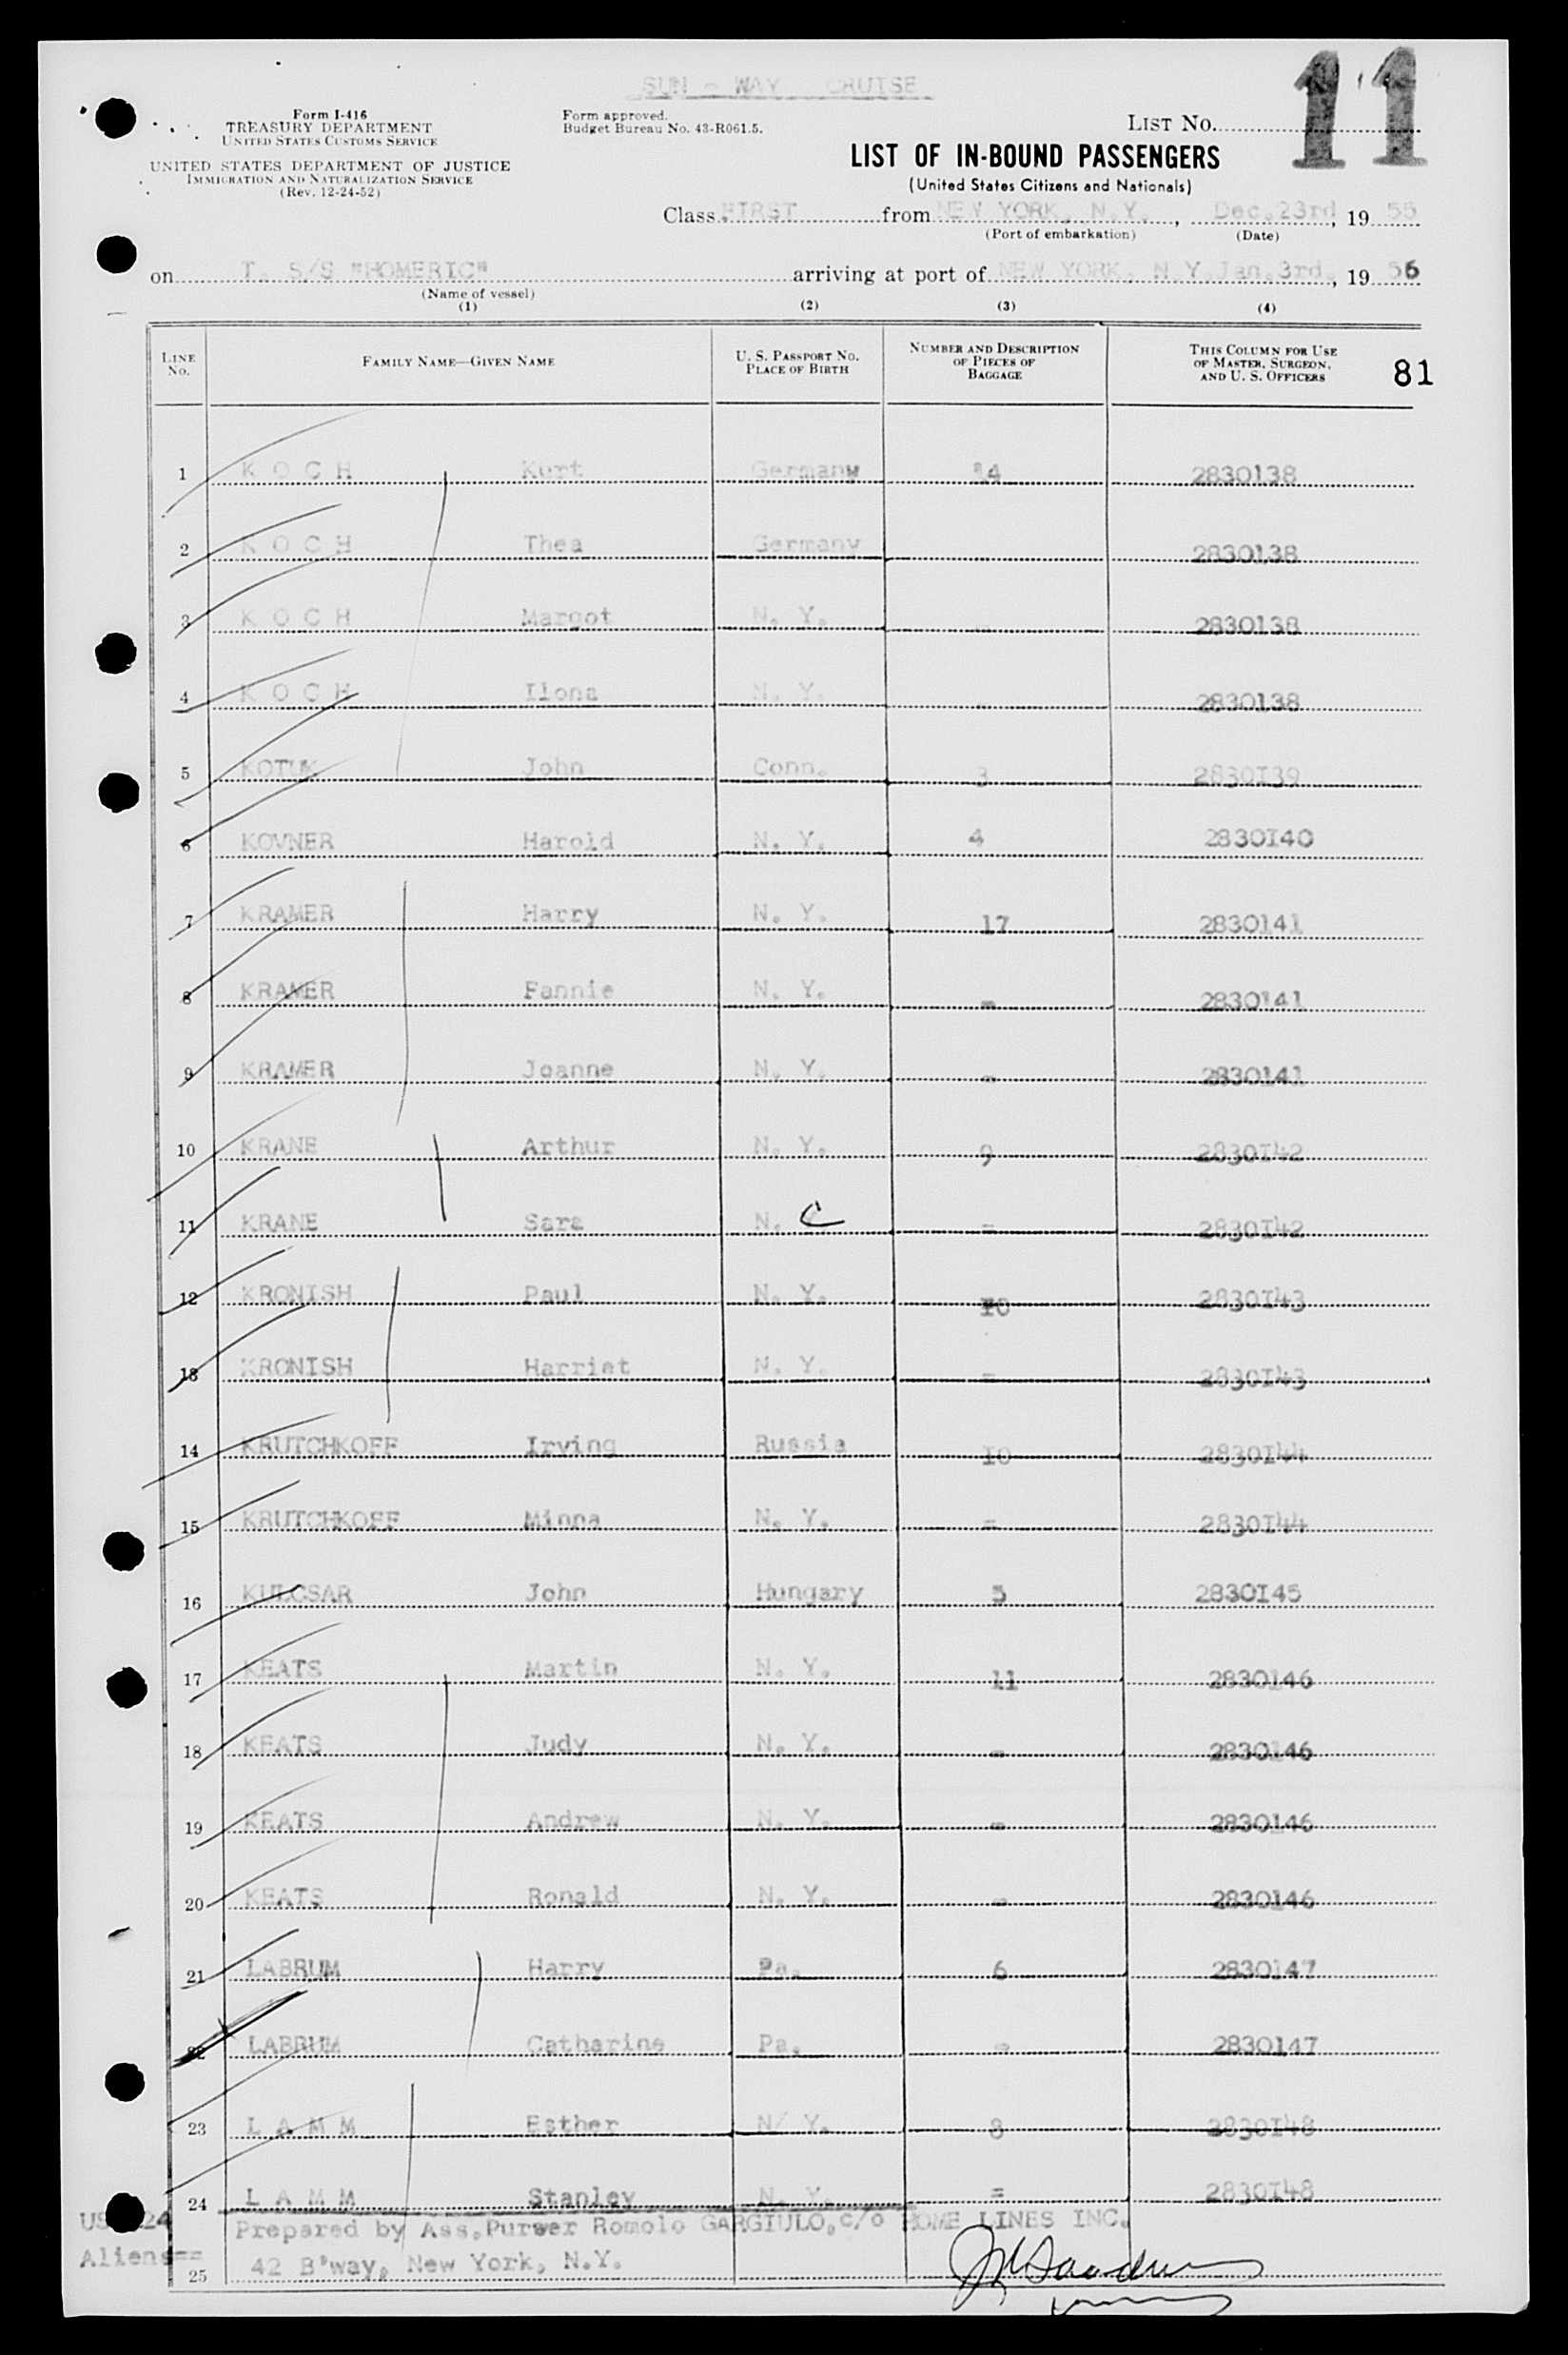 SUN - WAY CRUISE
11
Form I-416
TREASURY DEPARTMENT
UNITED STATES CUSTOMS SERVICE
UNITED STATES DEPARTMENT OF JUSTICE
IMMIGRATION AND NATURALIZATION SERVICE
(Rev. 12-24-52)
Form approved.
Budget Bureau No. 43-R061.5.
LIST NO.
LIST OF IN-BOUND PASSENGERS
(United States Citizens and Nationals)
Class FIRST from NEW YORK, N.Y., Dec. 23rd, 19 55
(Port of embarkation) (Date)
on T. S/S "HOMERIC" arriving at port of NEW YORK, N.Y. Jan. 3rd, 19 56
(Name of vessel)
(1) (2) (3) (4)
LINE NO. FAMILY NAME—GIVEN NAME U. S. PASSPORT NO. PLACE OF BIRTH NUMBER AND DESCRIPTION OF PIECES OF BAGGAGE THIS COLUMN FOR USE OF MASTER, SURGEON, AND U. S. OFFICERS 81
1 K O C H Kurt Germany 14 2830138
2 K O C H Thea Germany 2830138
3 K O C H Margot N. Y. - 2830138
4 K O C H Ilona N. Y. - 2830138
5 KOTUK John Conn. 3 2830I39
6 KOVNER Harold N. Y. 4 2830I40
7 KRAMER Harry N. Y. 17 2830141
8 KRAMER Fannie N. Y. - 2830141
9 KRAMER Joanne N. Y. - 2830141
10 KRANE Arthur N. Y. 9 2830I42
11 KRANE Sara N. C = 2830I42
12 KRONISH Paul N. Y. I0 2830I43
13 KRONISH Harriet N. Y. = 2830I43
14 KRUTCHKOFF Irving Russia I0 2830I44
15 KRUTCHKOFF Minna N. Y. = 2830I44
16 KULCSAR John Hungary 5 2830I45
17 KEATS Martin N. Y. 11 2830146
18 KEATS Judy N. Y. - 2830146
19 KEATS Andrew N. Y. - 2830146
20 KEATS Ronald N. Y. - 2830146
21 LABRUM Harry Pa. 6 2830147
22 LABRUM Catharine Pa. - 2830147
23 L A M M Esther N/ Y. 8 2830I48
24 L A M M Stanley N. Y. = 2830I48
24 Prepared by Ass.Purser Romolo GARGIULO,c/o HOME LINES INC.
Aliens== 42 B'way, New York, N.Y.
25